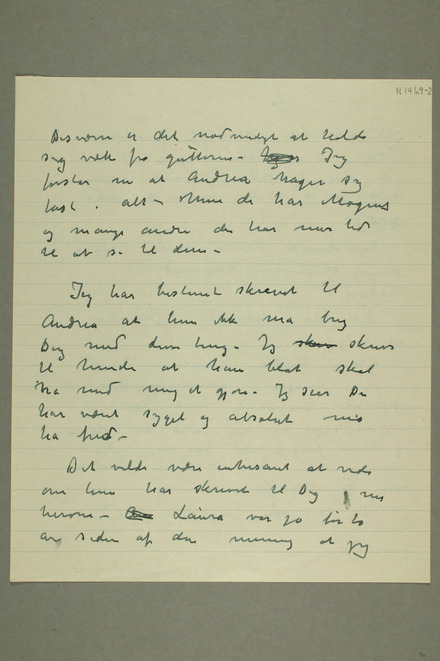 N 1469-2
Desværre er det nødvendigt at holde
sig væk fra gutterne. Jeg
forstår nu at Andrea tager sig
fast i alt. Men de har Mogens
og mange andre der har mer tid
til at se til dem.
Jeg har bestemt skrevet til
Andrea at hun ikke må bry
Dig med den ting. Jeg skrev
til hende at han blot skal
ha med mig at gøre. Jeg sier Du
har været syg og absolut må
ha fred.
Det vilde være interesant at vide
om hun har skrevet til Dig nu
herom. Laura var jo for to
år siden af den mening at jeg